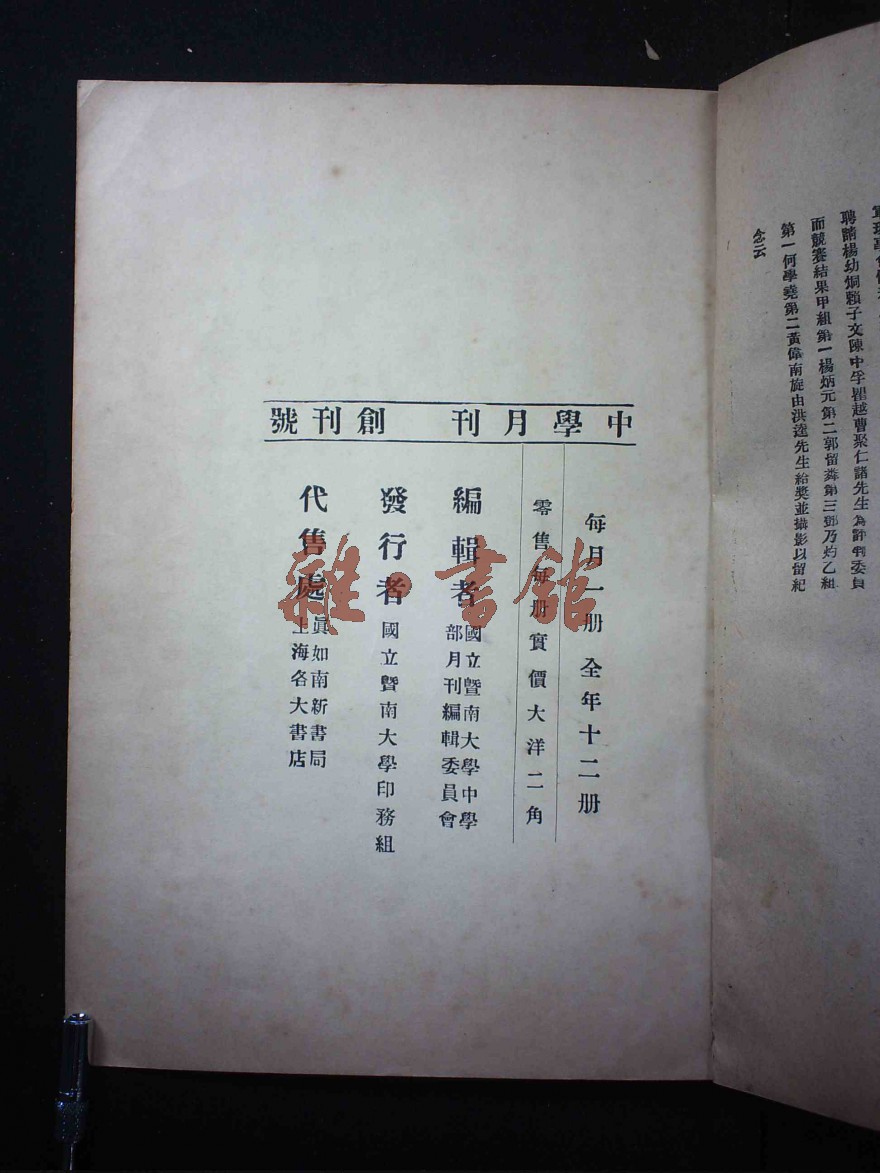 聘請楊幼炯賴子文陳中孚瞿越曹聚仁諸先生為評判委員
而競賽結果甲組第一楊炳元第二郭留蓀第三鄧乃灼乙組
第一何學堯第二黃偉南旋由洪逵先生給獎並攝影以留紀
念云
中學月刊 創刊號
每月一册 全年十二册
零售每册實價大洋二角
編輯者 國立暨南大學中學
部月刊編輯委員會
發行者 國立暨南大學印務組
代售處 眞如南新書局
上海各大書店
雜·書館